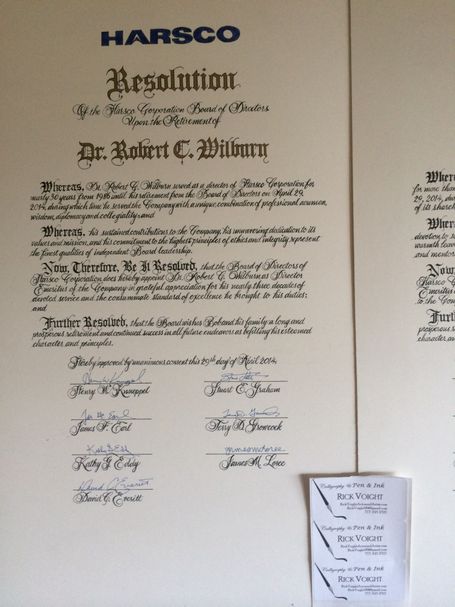 HARSCO
Resolution
Of the Harsco Corporation Board of Directors
Upon the Retirement of
Dr. Robert C. Wilburn
Whereas, Dr. Robert C. Wilburn served as a director of Harsco Corporation for
nearly 30 years from 1986 until his retirement from the Board of Directors on April 29,
2014, during which time he served the Company with a unique combination of professional acumen,
wisdom, diplomacy and collegiality; and
Whereas, his sustained contributions to the Company, his unwavering dedication to its
values and mission, and his commitment to the highest principles of ethics and integrity represent
the finest qualities of independent Board leadership.
Now, Therefore, Be It Resolved, that the Board of Directors of
Harsco Corporation does hereby appoint Dr. Robert C. Wilburn as Director
Emeritus of the Company in grateful appreciation for his nearly three decades of
devoted service and the consummate standard of excellence he brought to his duties;
and
Further Resolved, that the Board wishes Bob and his family a long and
prosperous retirement and continued success in all future endeavors as befitting his esteemed
character and principles.
Hereby approved by unanimous consent this 29th day of April 2014.
Henry W. Knueppel
Stuart E. Graham
James F. Earl
Terry D. Growcock
Kathy G. Eddy
James M. Loree
David C. Everitt
Where
for more than
29, 2014, du
of its shareh
Whe
devotion to
warmth leave
and mentor
Now,
Harsco
Emeritus
to the Com
Furt
prosperous
character
Calligraphy & Pen & Ink
RICK VOIGHT
Calligraphy & Pen & Ink
RICK VOIGHT
Calligraphy & Pen & Ink
RICK VOIGHT